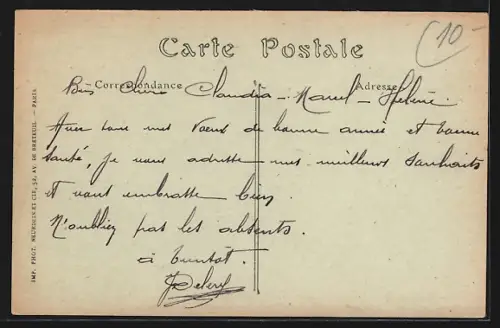 10-
Carte Postale
Correspondance
Adresse
Bien Chers Claudia - Marcel - Hélène.
Avec tous mes Vœux de bonne année et bonne
santé, je vous adresse mes meilleurs souhaits
et vous embrasse bien
N'oubliez pas les absents.
à bientôt.
IMP. PHOT. NEURDEIN ET CIE, 52, AV. DE BRETEUIL. — PARIS.